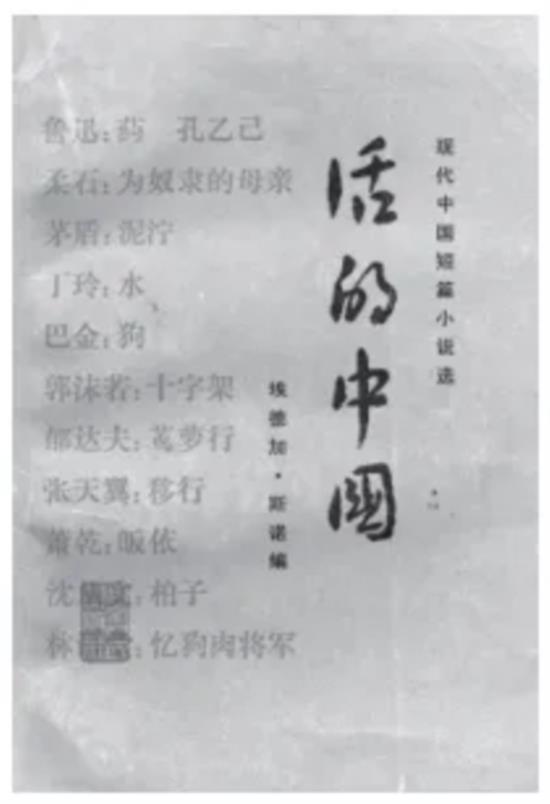 现代中国短篇小说选
活的中國
埃德加·斯诺编
鲁迅：药 孔乙己
柔石：为奴隶的母亲
茅盾：泥泞
丁玲：水
巴金：狗
郭沫若：十字架
郁达夫：茑萝行
张天翼：移行
萧乾：皈依
沈文：柏子
林：忆狗肉将军